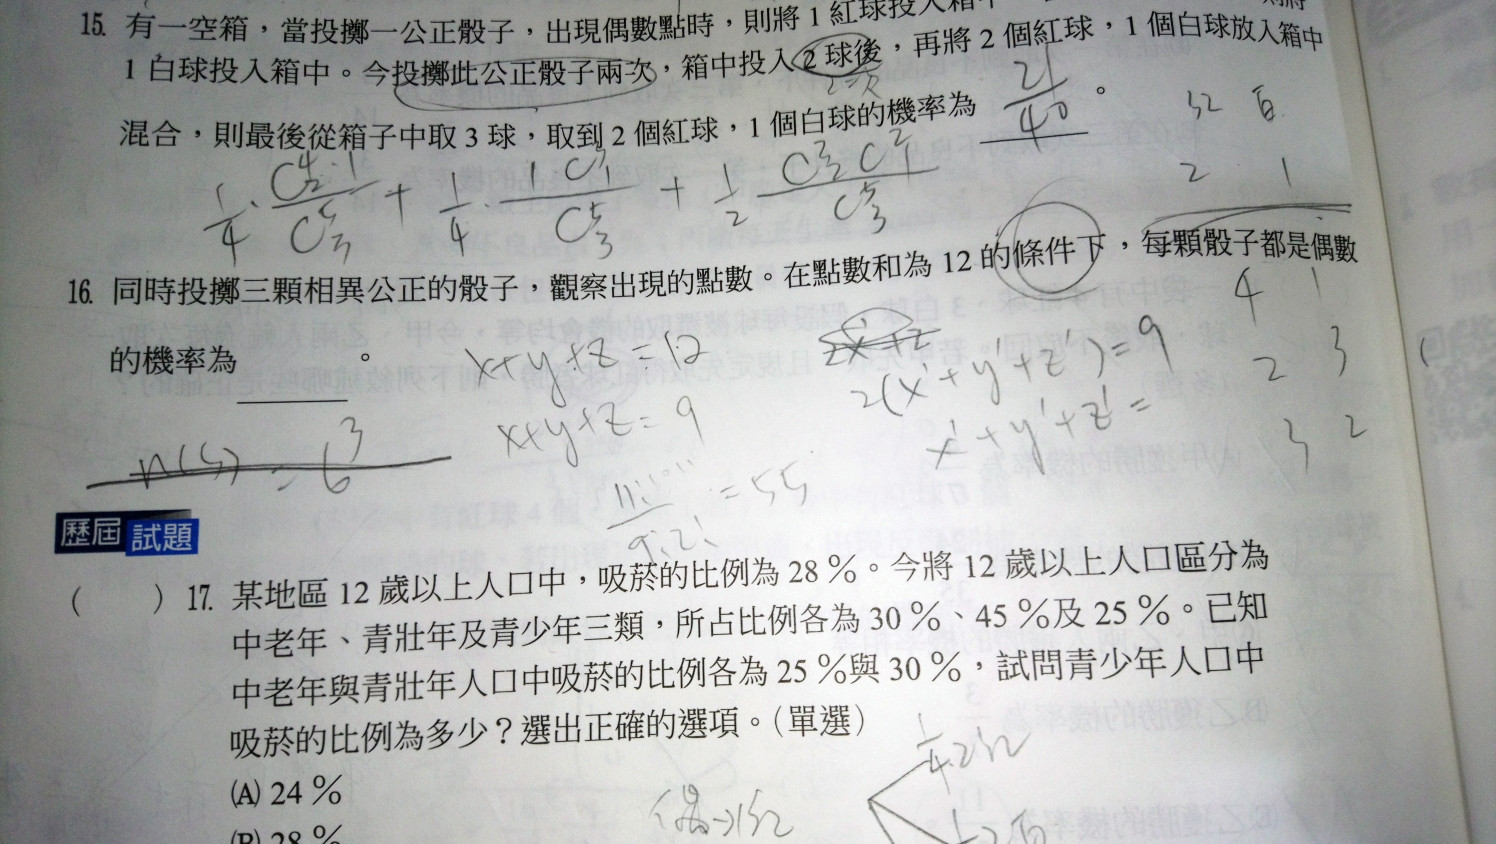 15. 有一空箱，當投擲一公正骰子，出現偶數點時，則將1紅球投入箱中
1白球投入箱中。今投擲此公正骰子兩次，箱中投入2球後，再將2個紅球，1個白球放入箱中
混合，則最後從箱子中取3球，取到2個紅球，1個白球的機率為 21/40 。
紅 白
2 1
1/4 · C⁴₂·1/C⁵₃ + 1/4 · 1·C³₁/C⁵₃ + 1/2 C³₂C²₁/C⁵₃
16. 同時投擲三顆相異公正的骰子，觀察出現的點數。在點數和為12的條件下，每顆骰子都是偶數
的機率為 。
4 1
2 3
3 2
x+y+z=12
x+y+z=9
2(x'+y'+z')=9
x'+y'+z'=
n(S) = 6³
11!/9!2! =55
歷屆試題
( ) 17. 某地區12歲以上人口中，吸菸的比例為28％。今將12歲以上人口區分為
中老年、青壯年及青少年三類，所占比例各為30％、45％及25％。已知
中老年與青壯年人口中吸菸的比例各為25％與30％，試問青少年人口中
吸菸的比例為多少？選出正確的選項。（單選）
(A) 24％
1/4 2紅
偶→1紅
(B) 28％